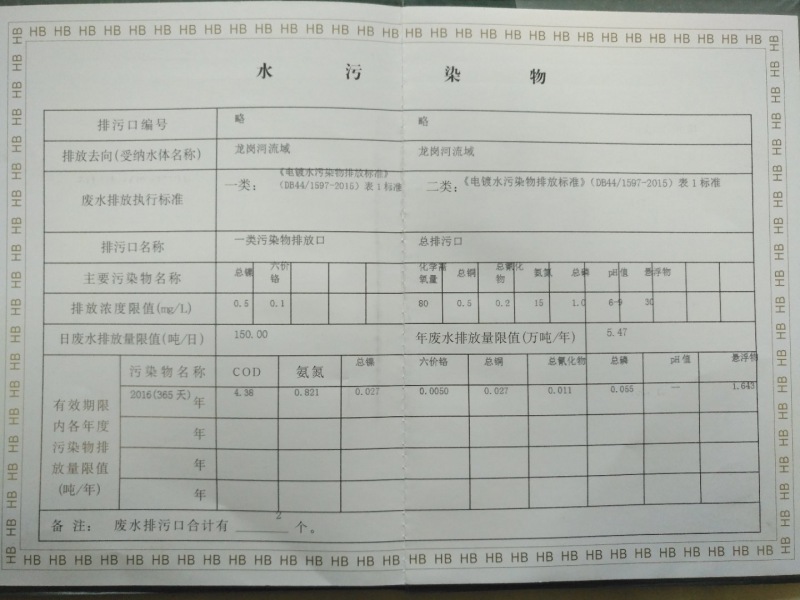 水 污 染 物
排污口编号 略 略
排放去向(受纳水体名称) 龙岗河流域 龙岗河流域
废水排放执行标准 一类：《电镀水污染物排放标准》（DB44/1597-2015）表1标准 二类：《电镀水污染物排放标准》（DB44/1597-2015）表1标准
排污口名称 一类污染物排放口 总排污口
主要污染物名称 总镍 六价铬 化学需氧量 总铜 总氰化物 氨氮 总磷 pH值 悬浮物
排放浓度限值(mg/L) 0.5 0.1 80 0.5 0.2 15 1.0 6-9 30
日废水排放量限值(吨/日) 150.00 年废水排放量限值(万吨/年) 5.47
有效期限内各年度污染物排放量限值(吨/年)
污染物名称 COD 氨氮 总镍 六价铬 总铜 总氰化物 总磷 pH值 悬浮物
2016(365天)年 4.38 0.821 0.027 0.0050 0.027 0.011 0.055 — 1.643
年
年
年
备 注： 废水排污口合计有 2 个。